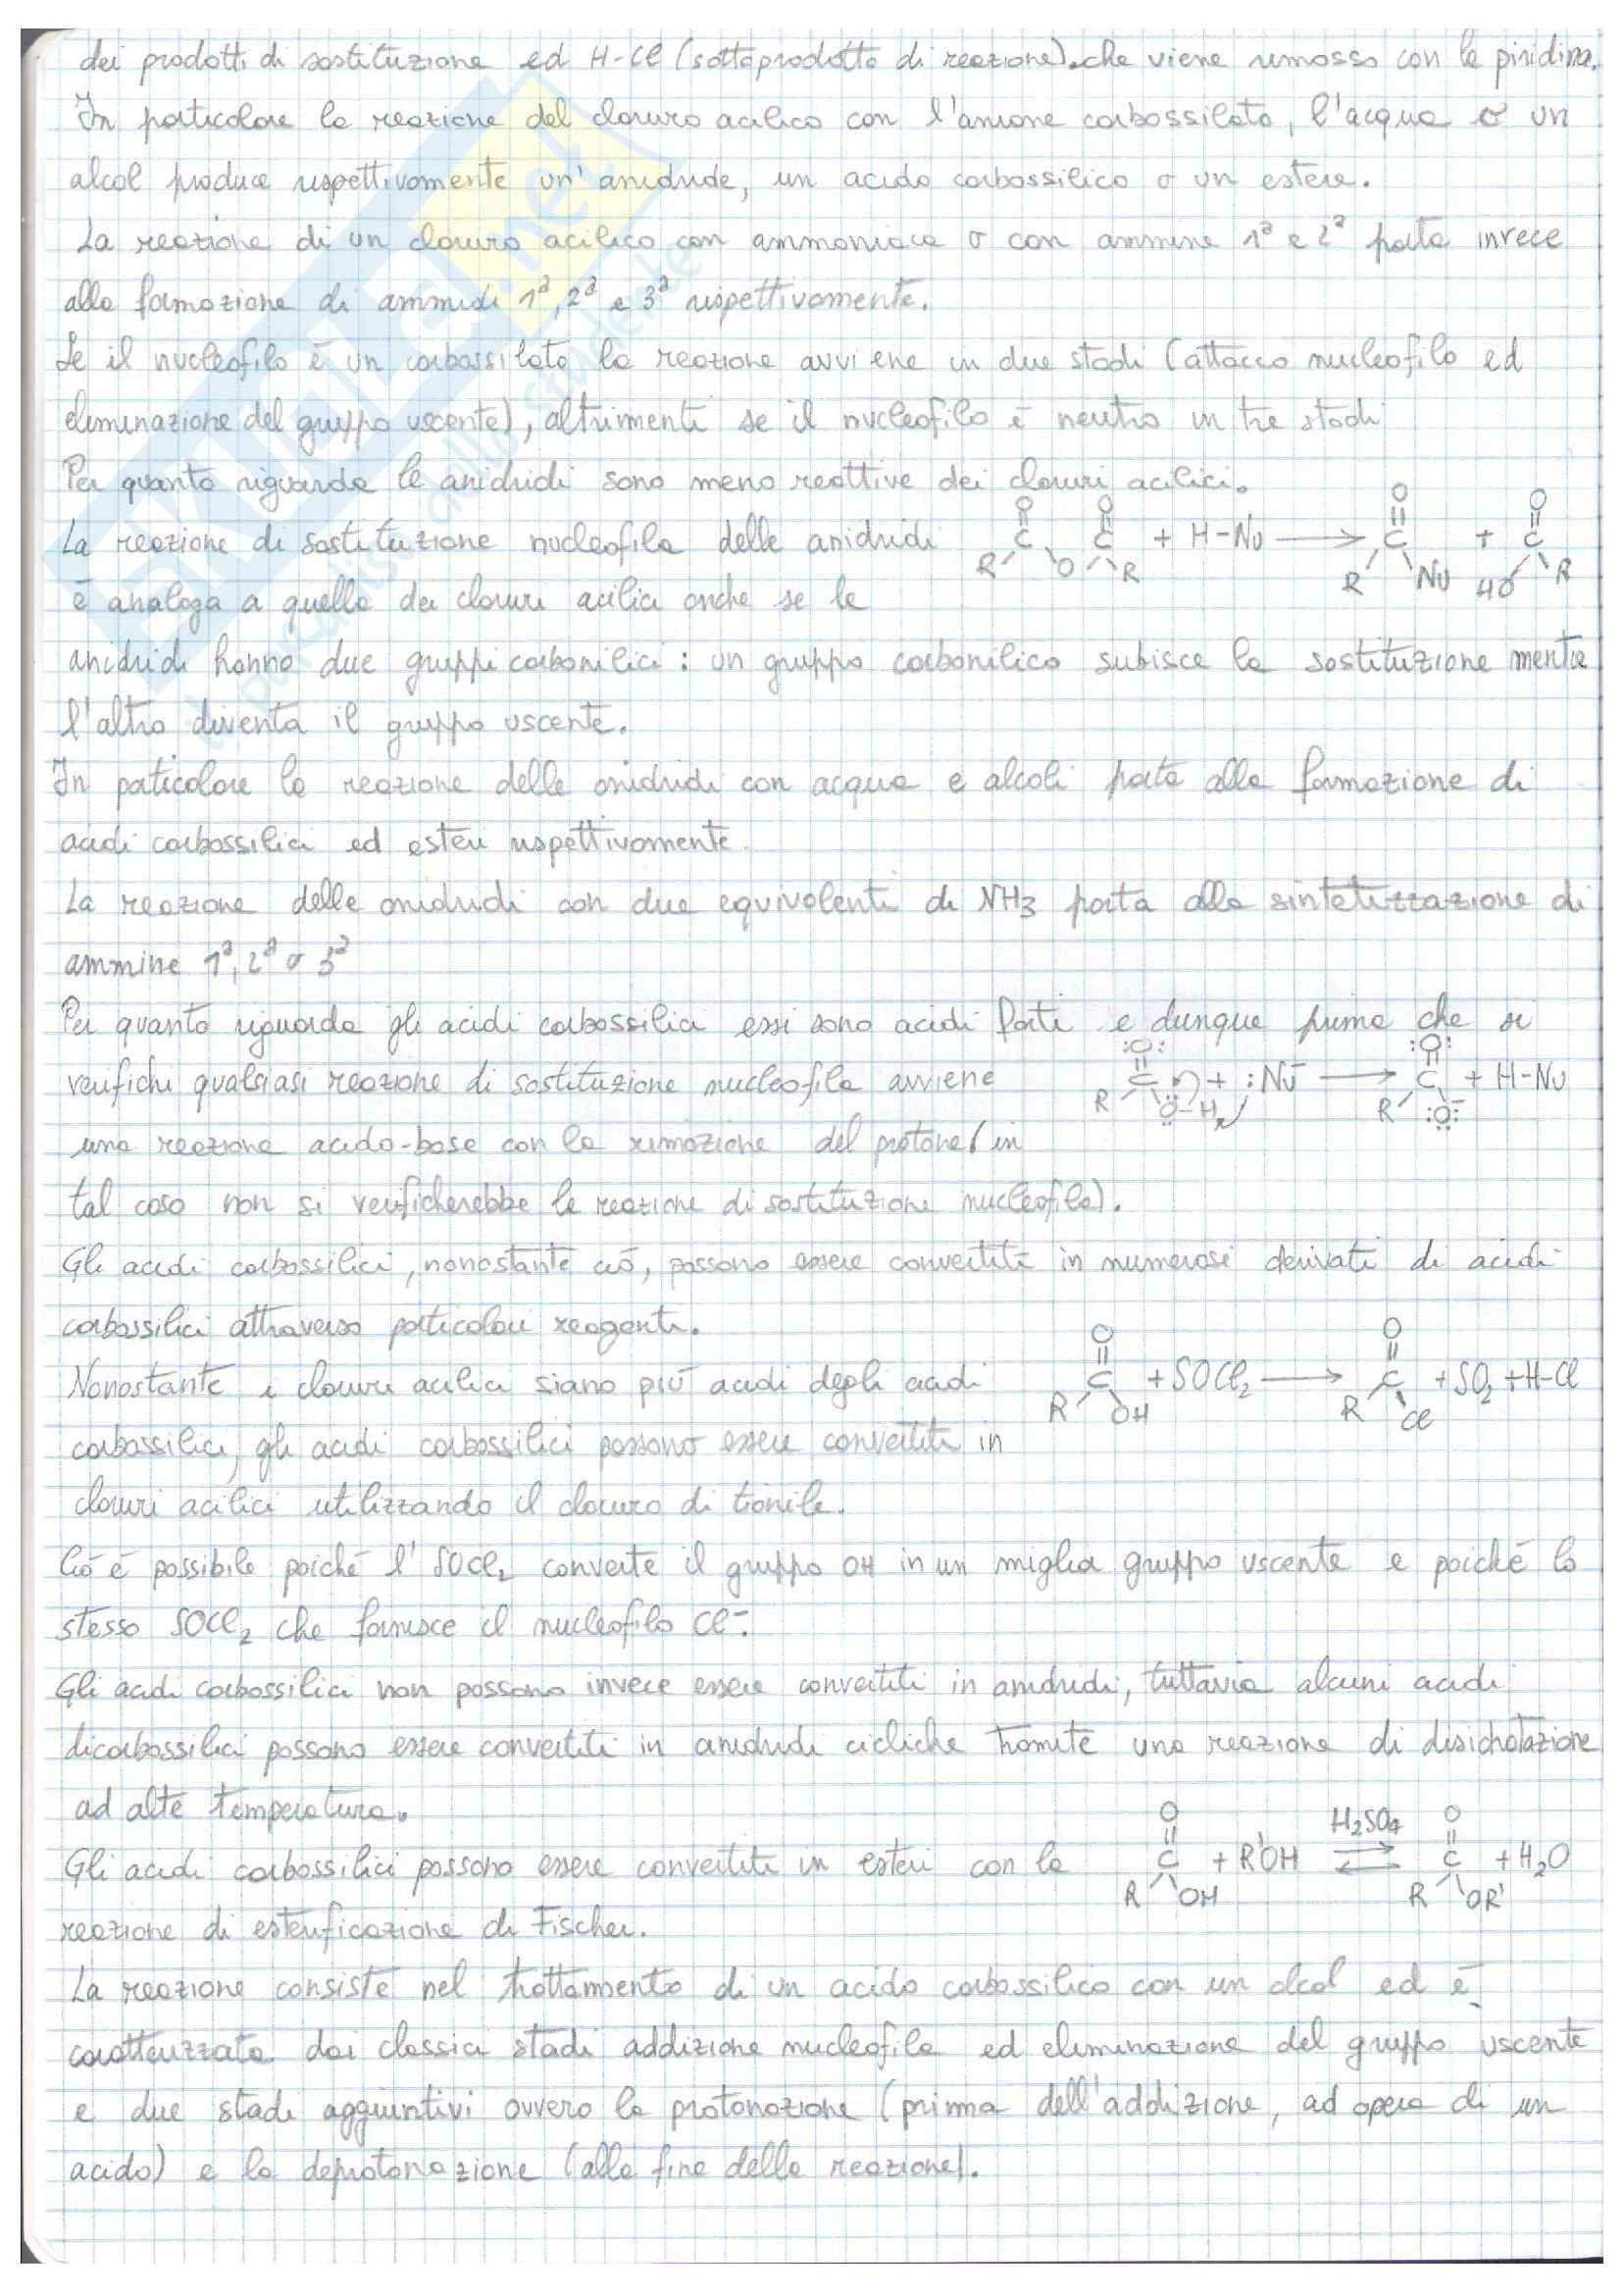 dei prodotti di sostituzione ed H-Cl (sottoprodotto di reazione) che viene rimosso con la piridina.
In particolare la reazione del cloruro acilico con l'anione carbossilato, l'acqua o un
alcol produce rispettivamente un'anidride, un acido carbossilico o un estere.
La reazione di un cloruro acilico con ammoniaca o con ammine 1ª e 2ª porta invece
alla formazione di ammidi 1ª, 2ª e 3ª rispettivamente.
Se il nucleofilo è un carbossilato la reazione avviene in due stadi (attacco nucleofilo ed
eliminazione del gruppo uscente), altrimenti se il nucleofilo è neutro in tre stadi
Per quanto riguarda le anidridi sono meno reattive dei cloruri acilici.
La reazione di sostituzione nucleofila delle anidridi
O O O O
C C + H-Nu → C + C
R O R R Nu HO R
è analoga a quella dei cloruri acilici anche se le
anidridi hanno due gruppi carbonilici: un gruppo carbonilico subisce la sostituzione mentre
l'altro diventa il gruppo uscente.
In particolare la reazione delle anidridi con acqua e alcoli porta alla formazione di
acidi carbossilici ed esteri rispettivamente.
La reazione delle anidridi con due equivalenti di NH3 porta alla sintetizzazione di
ammine 1ª, 2ª o 3ª
Per quanto riguarda gli acidi carbossilici essi sono acidi forti e dunque prima che si
verifichi qualsiasi reazione di sostituzione nucleofila avviene
:O: :O:
C + :Nu⁻ → C + H-Nu
R O-H R :O:⁻
una reazione acido-base con la rimozione del protone (in
tal caso non si verificherebbe la reazione di sostituzione nucleofila).
Gli acidi carbossilici, nonostante ciò, possono essere convertiti in numerosi derivati di acidi
carbossilici attraverso particolari reagenti.
Nonostante i cloruri acilici siano più acidi degli acidi
O O
C + SOCl₂ → C + SO₂ + H-Cl
R OH R Cl
carbossilici, gli acidi carbossilici possono essere convertiti in
cloruri acilici utilizzando il cloruro di tionile.
Ciò è possibile poiché l' SOCl₂ converte il gruppo OH in un miglior gruppo uscente e poiché lo
stesso SOCl₂ che fornisce il nucleofilo Cl⁻.
Gli acidi carbossilici non possono invece essere convertiti in anidridi, tuttavia alcuni acidi
dicarbossilici possono essere convertiti in anidridi cicliche tramite una reazione di disidratazione
ad alte temperature.
Gli acidi carbossilici possono essere convertiti in esteri con la
O H₂SO₄ O
C + R'OH ⇌ C + H₂O
R OH R OR'
reazione di esterificazione di Fischer.
La reazione consiste nel trattamento di un acido carbossilico con un alcol ed è
caratterizzata dai classici stadi addizione nucleofila ed eliminazione del gruppo uscente
e due stadi aggiuntivi ovvero la protonazione (prima dell'addizione, ad opera di un
acido) e la deprotonazione (alla fine della reazione).